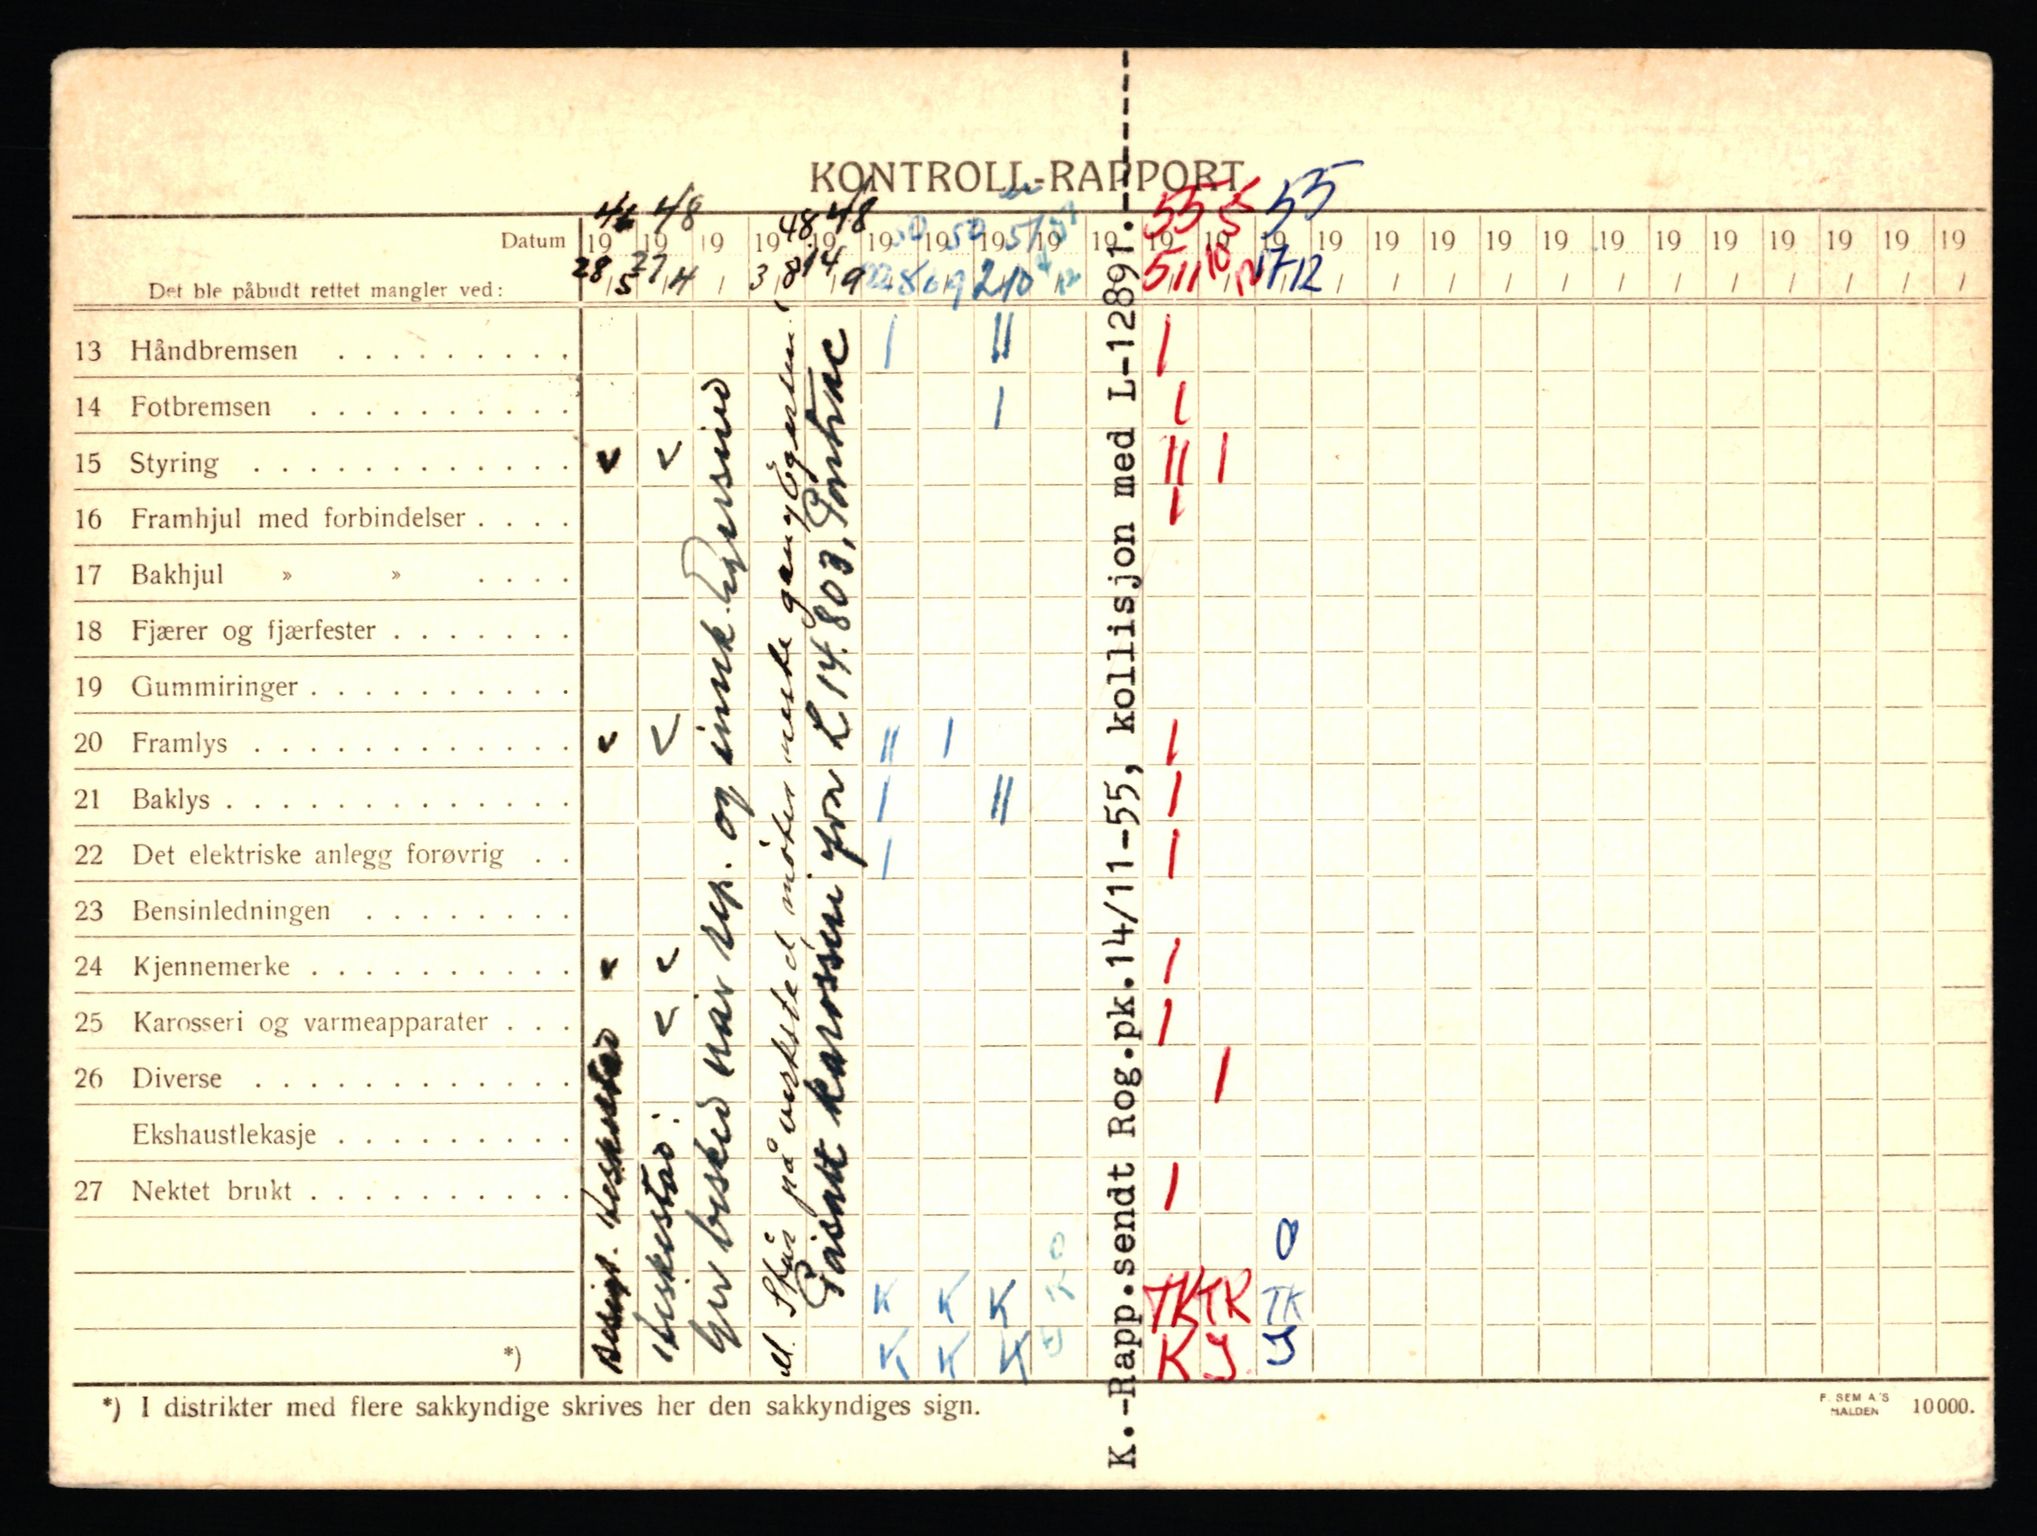 KONTROLL-RAPPORT
46 48 48 48 50 50 51 55 55 55
Datum 19 19 19 19 19 19 19 19 19 19 19 19 19 19 19 19 19 19 19 19 19 19 19 19 19
28/5 27/4 / 3/8 14/9 22/8 2/10 5/11 17/12
Det ble påbudt rettet mangler ved:
13 Håndbremsen . . . . . . . . . I II I
14 Fotbremsen . . . . . . . . . . I I
15 Styring . . . . . . . . . . . . < < II I
16 Framhjul med forbindelser . . . . I
17 Bakhjul » » . . . .
18 Fjærer og fjærfester . . . . . . .
19 Gummiringer . . . . . . . . . .
20 Framlys . . . . . . . . . . . . < < II I I
21 Baklys . . . . . . . . . . . . . I II I
22 Det elektriske anlegg forøvrig . . I I
23 Bensinledningen . . . . . . . .
24 Kjennemerke . . . . . . . . . . < < I
25 Karosseri og varmeapparater . . . < I
26 Diverse . . . . . . . . . . . . I
Ekshaustlekasje . . . . . . . . .
27 Nektet brukt . . . . . . . . . . I
0 0
K K K K TK TK TK
*) K K K K J J
Besigt. Heskestad
Heskestad:
Gir beskjed når rep. og innk.
på verksted møter neste gang
Påsatt karosseri fra L 14.803, Pontiac
K.-Rapp.sendt Rog.pk.14/11-55, kollisjon med L-12891.--------
*) I distrikter med flere sakkyndige skrives her den sakkyndiges sign.
F. SEM A/S
HALDEN
10000.